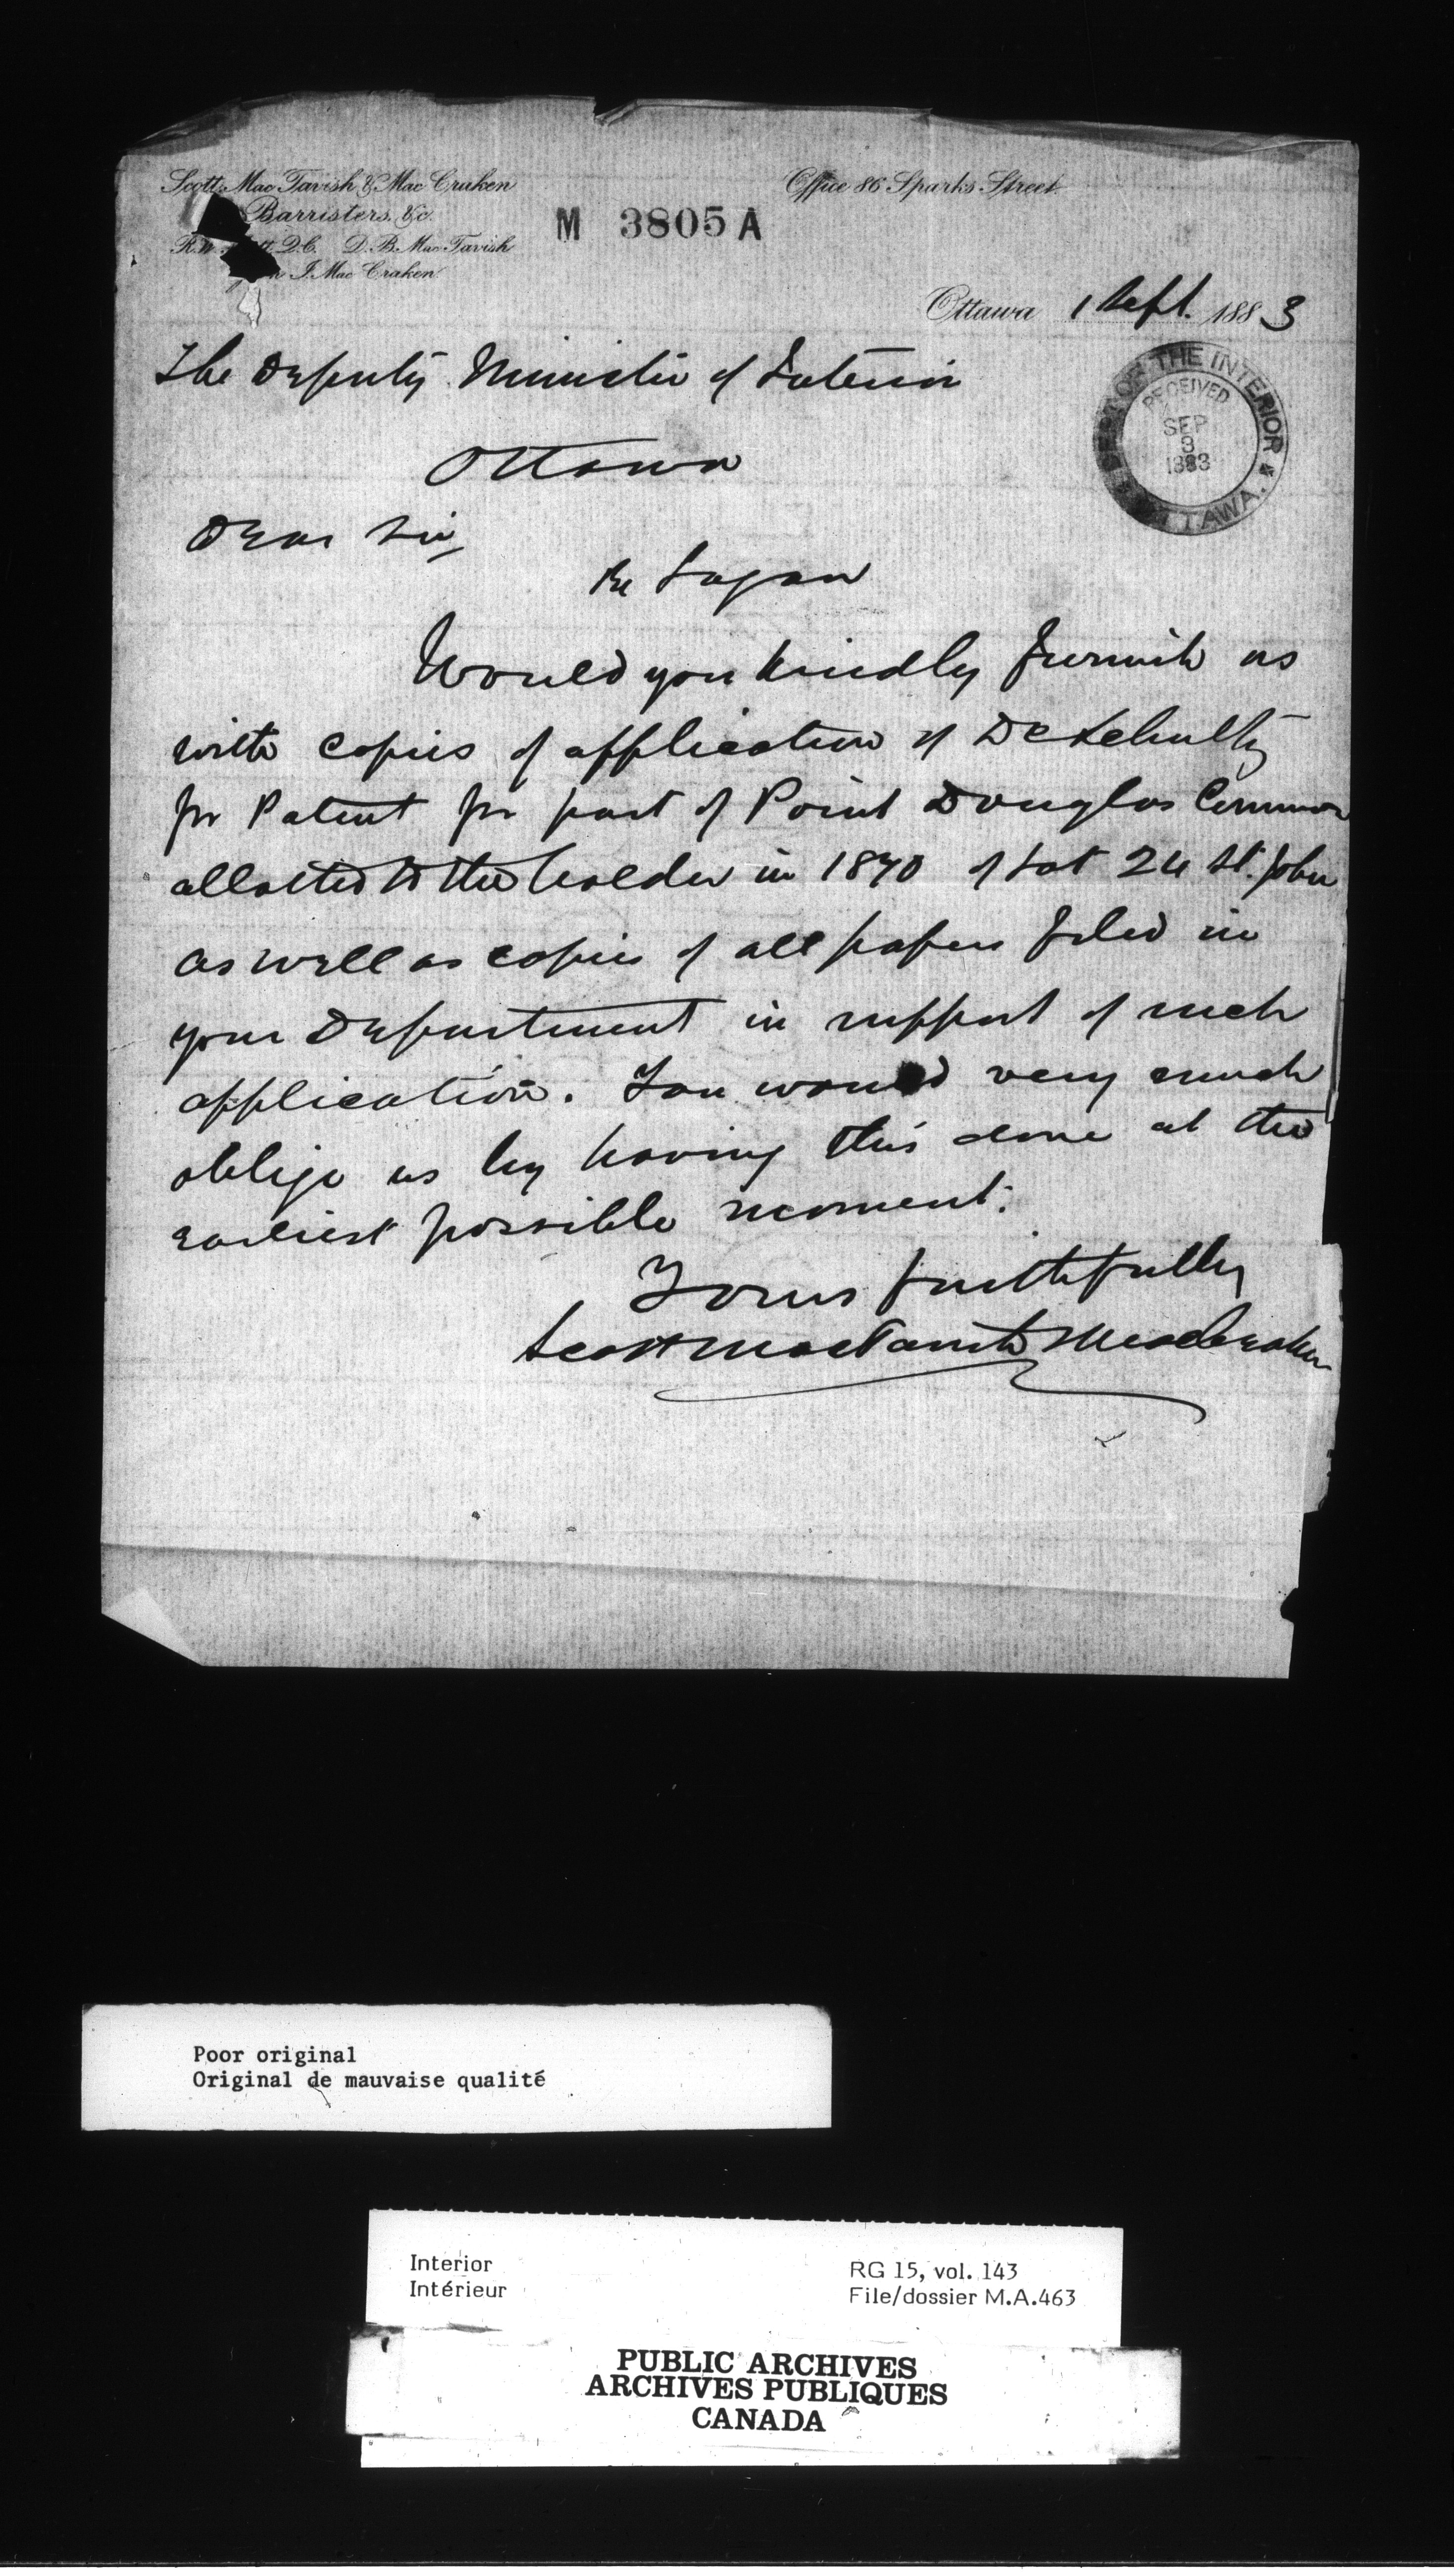 Scott, Mac Tavish & Mac Craken
Barristers, &c.
R.W. Q.C. D.B. Mac Tavish
J. Mac Craken
Office 86 Sparks Street
M 3805 A
Ottawa 1 Sept. 1883
The Deputy Minister of Interior
Ottawa
DEPT OF THE INTERIOR
RECEIVED
SEP
3
1883
OTTAWA.
Dear Sir,
Re Logan
Would you kindly furnish us
with copies of application of Dr Schultz
for Patent for part of Point Douglas Common
allotted to the holder in 1870 of Lot 24 St. John
as well as copies of all papers filed in
your Department in support of such
application. You would very much
oblige us by having this done at the
earliest possible moment.
Yours faithfully
Scott MacTavish & MacCraken
Poor original
Original de mauvaise qualité
Interior
Intérieur
RG 15, vol. 143
File/dossier M.A.463
PUBLIC ARCHIVES
ARCHIVES PUBLIQUES
CANADA